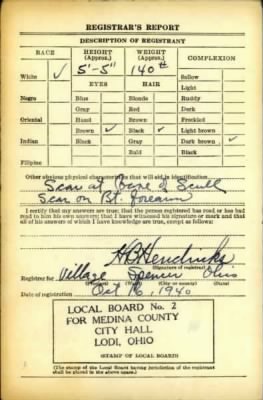 REGISTRAR'S REPORT
DESCRIPTION OF REGISTRANT
RACE HEIGHT (Approx.) WEIGHT (Approx.) COMPLEXION
White ✓ 5'-5" 140# Sallow
EYES HAIR Light
Negro Blue Blonde Ruddy
Gray Red Dark
Oriental Hazel Brown Freckled
Brown ✓ Black ✓ Light brown
Indian Black Gray Dark brown ✓
Bald Black
Filipino
Other obvious physical characteristics that will aid in identification
Scar at Base of Scull
Scar on Rt. forearm
I certify that my answers are true; that the person registered has read or has had
read to him his own answers; that I have witnessed his signature or mark and that
all of his answers of which I have knowledge are true, except as follows:
Hendricks
(Signature of registrar)
Registrar for Village Spencer Ohio
(City or county) (State)
Date of registration Oct 16, 1940
LOCAL BOARD No. 2
FOR MEDINA COUNTY
CITY HALL
LODI, OHIO
(STAMP OF LOCAL BOARD)
(The stamp of the Local Board having jurisdiction of the registrant
shall be placed in the above space.)